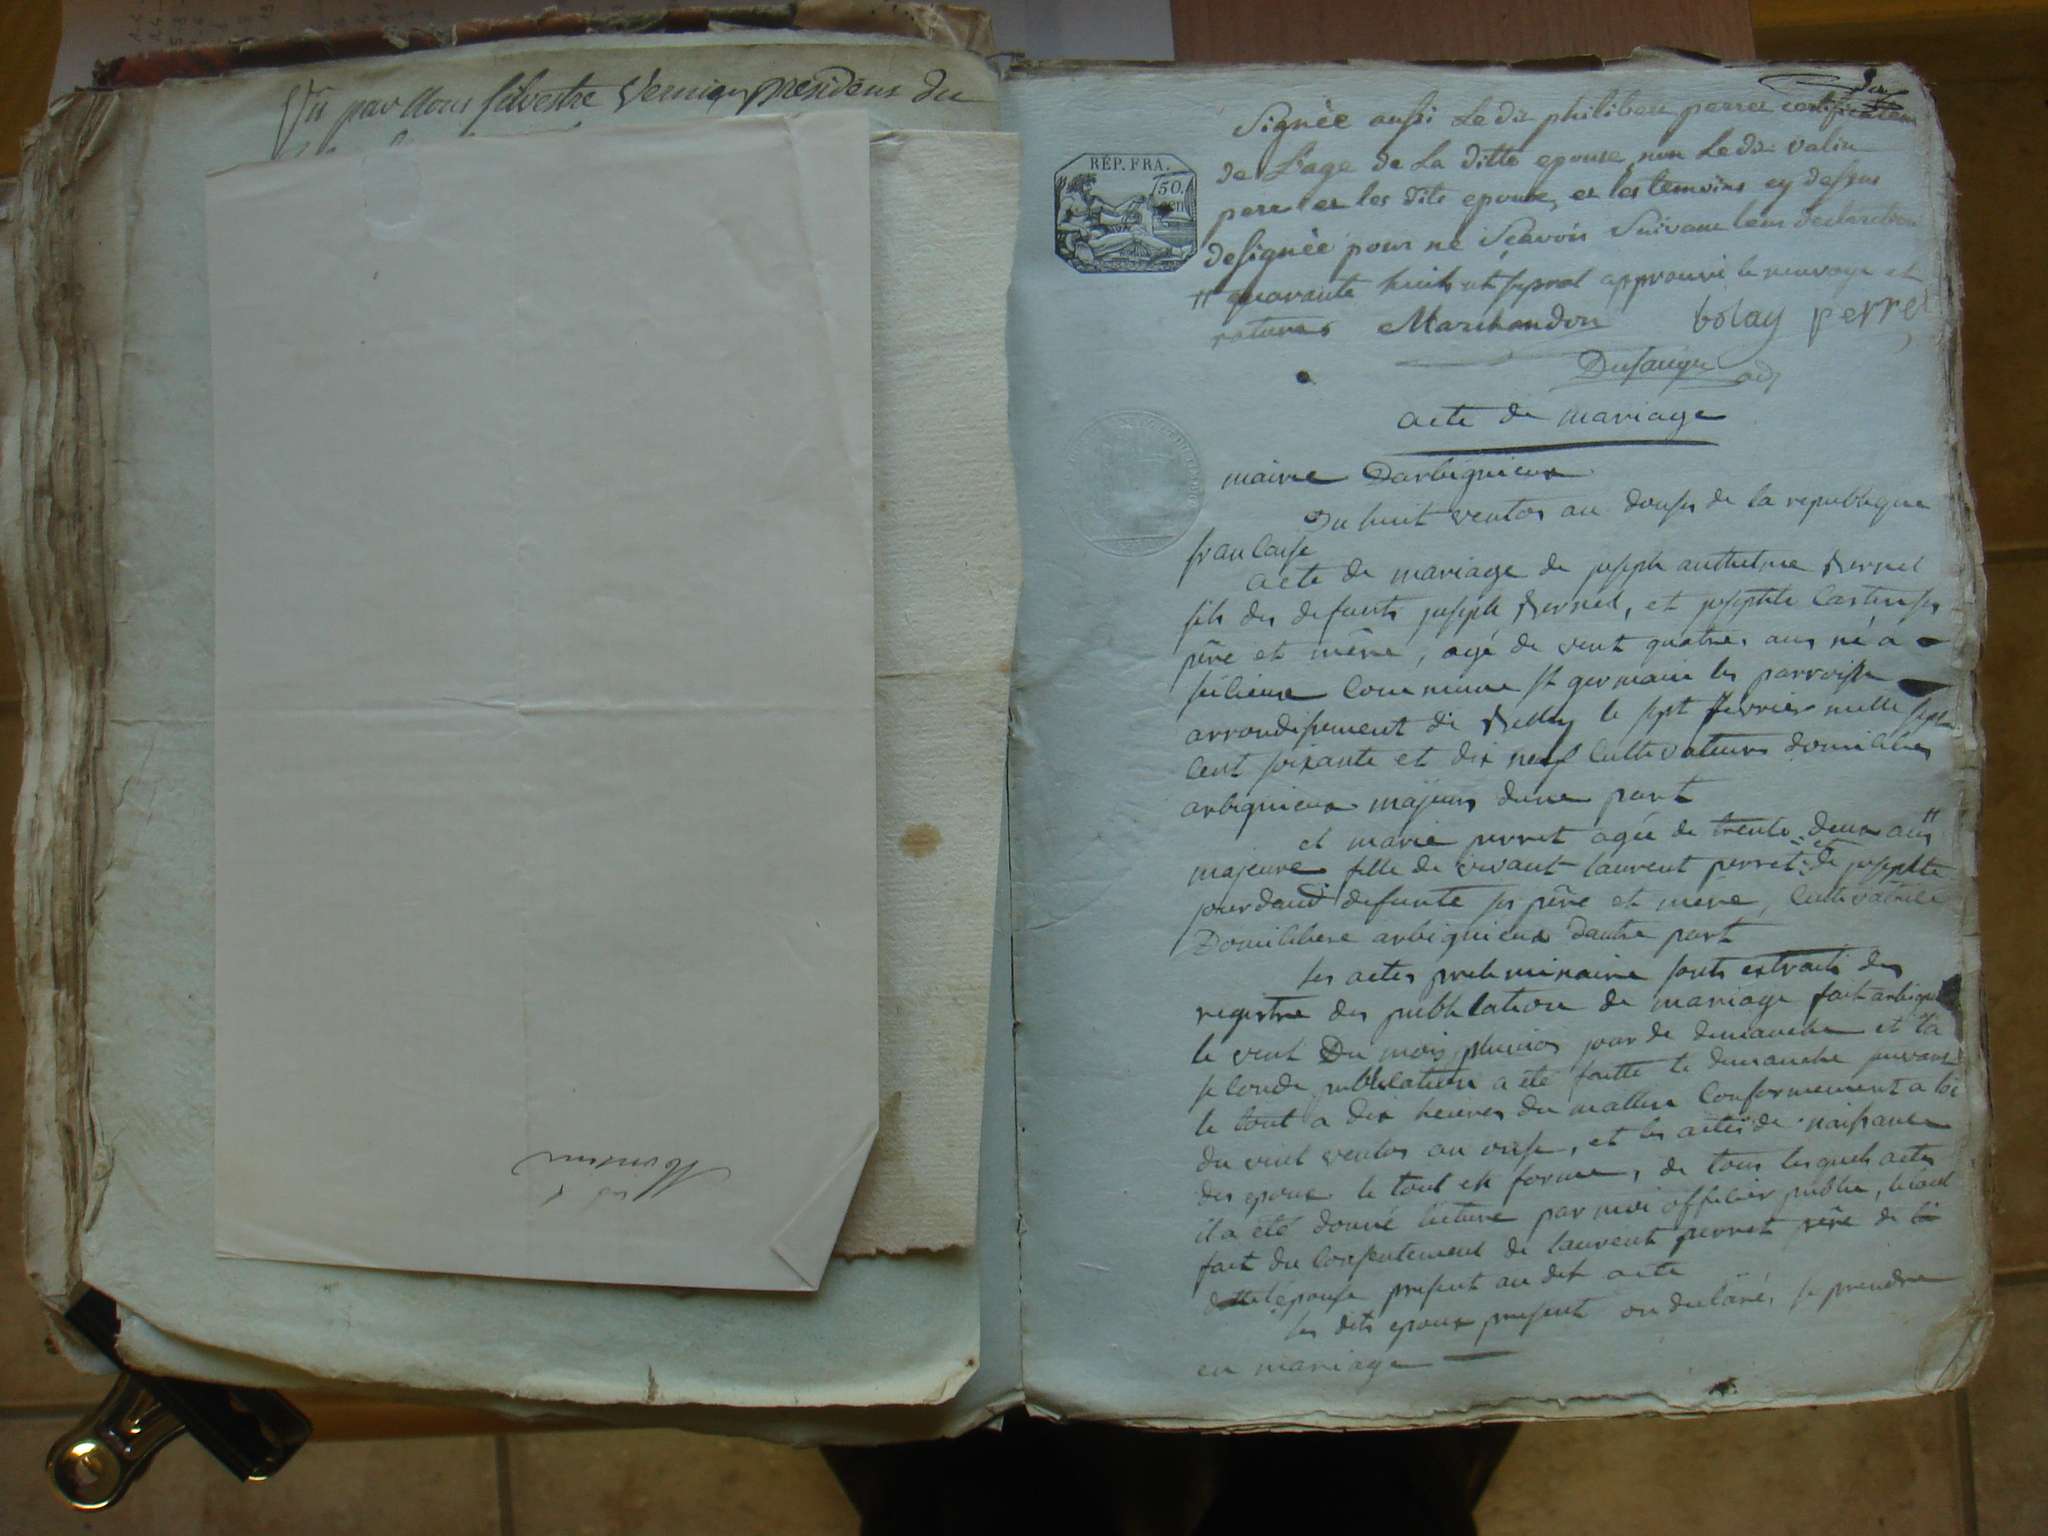 Vü par Nous Silvestre Vernier président du
Signèe aussi Le dit philibert perret certificateur
de L'age de La ditte epouse, non Le dit valin
pere et les dits epoux, et les temoins cy dessus
designée pour ne Scavoir Suivant leur declaration
RÉP. FRA.
50.
cen
quarante huit approuvé le renvoye et
ratures Marchandon bolay perret
Dusaugey adj
acte de mariage
mairie Darbignieux
Du huit ventos an douse de la republique
francaise
acte de mariage de joseph anthelme Bernel
fils des defunts joseph Bernel, et josephte Castin ses
père et mère, agé de vent quatres ans né a
silieux Commune st germain les parroisse
arrondisement de Belley le sept fevrier mille sept
cent soixante et dix neuf Cultivateurs domicilies
arbignieux majeurs dune part
et marie perret agée de trente deux ans
majeure fille de vivant laurent perret et de josephte
jourdand defunte ses père et mere, Cultivatrice
Domiciliere arbignieux dautre part
les actes preliminaire sont extraits des
registre des publication de mariage fait arbignieux
le vent Du mois pluvios jour de dimanche et la
seconde publication a été faitte le dimanche suivant
le tout a dix heures du mattin Conformement a loi
du vent ventos an onse, et les actes de naissance
des epoux le tout en forme, de tous lesquels actes
il a été donné lecture par moi officier public, le tout
fait du Consentement de laurent perret père de la
ditte épouse present au dit acte
les dits epoux present on declaré, se prendre
en mariage
Monsieur